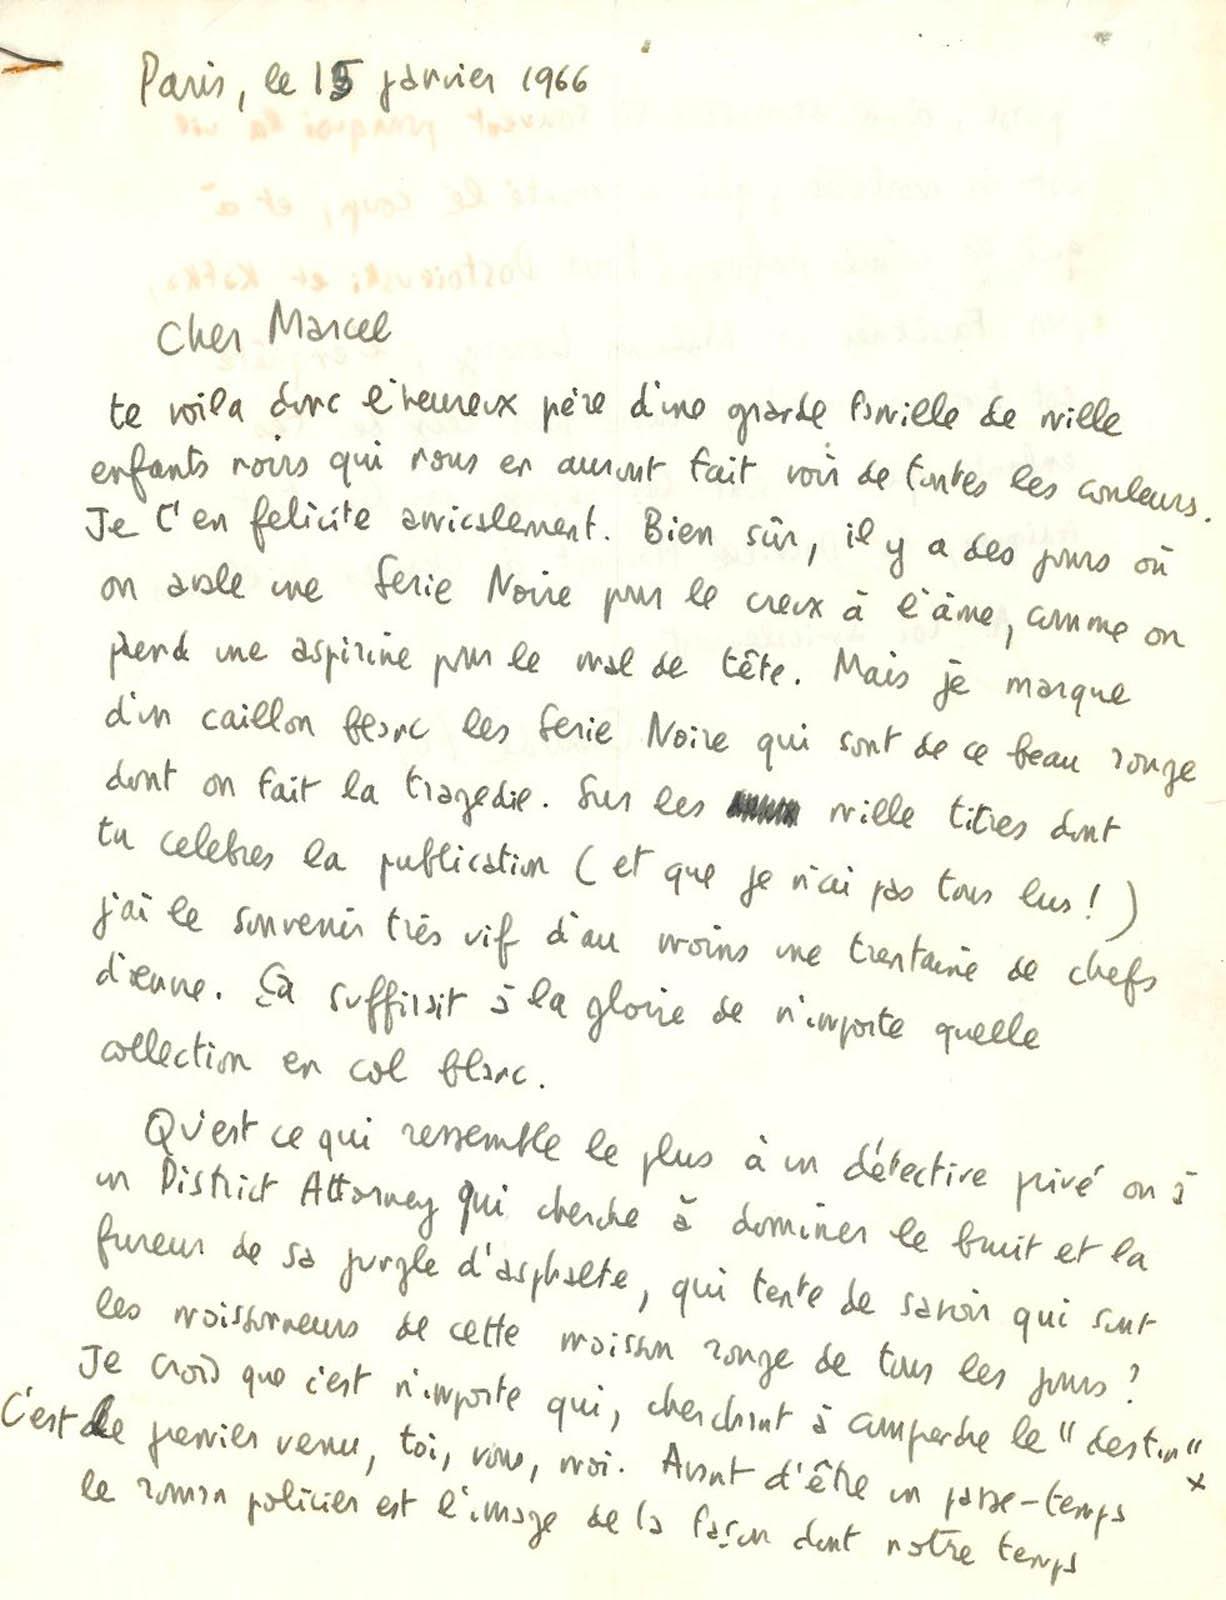 Paris, le 15 janvier 1966
Cher Marcel
te voila donc l'heureux père d'une grande famille de mille
enfants noirs qui nous en auront fait voir de toutes les couleurs.
Je t'en felicite amicalement. Bien sûr, il y a des jours où
on avale une Serie Noire pour le creux à l'âme, comme on
prend une aspirine pour le mal de tête. Mais je marque
d'un caillou blanc les Serie Noire qui sont de ce beau rouge
dont on fait la tragedie. Sur les mille titres dont
tu celebres la publication ( et que je n'ai pas tous lus ! )
j'ai le souvenir très vif d'au moins une trentaine de chefs
d'œuvre. Ça suffirait à la gloire de n'importe quelle
collection en col blanc.
Qu'est ce qui ressemble le plus à un détective privé ou à
un District Attorney qui cherche à dominer le bruit et la
fureur de sa jungle d'asphalte, qui tente de savoir qui sont
les moissonneurs de cette moisson rouge de tous les jours ?
Je crois que c'est n'importe qui, cherchant à comprendre le "destin"
C'est le premier venu, toi, vous, moi. Avant d'être un passe-temps x
le roman policier est l'image de la façon dont notre temps